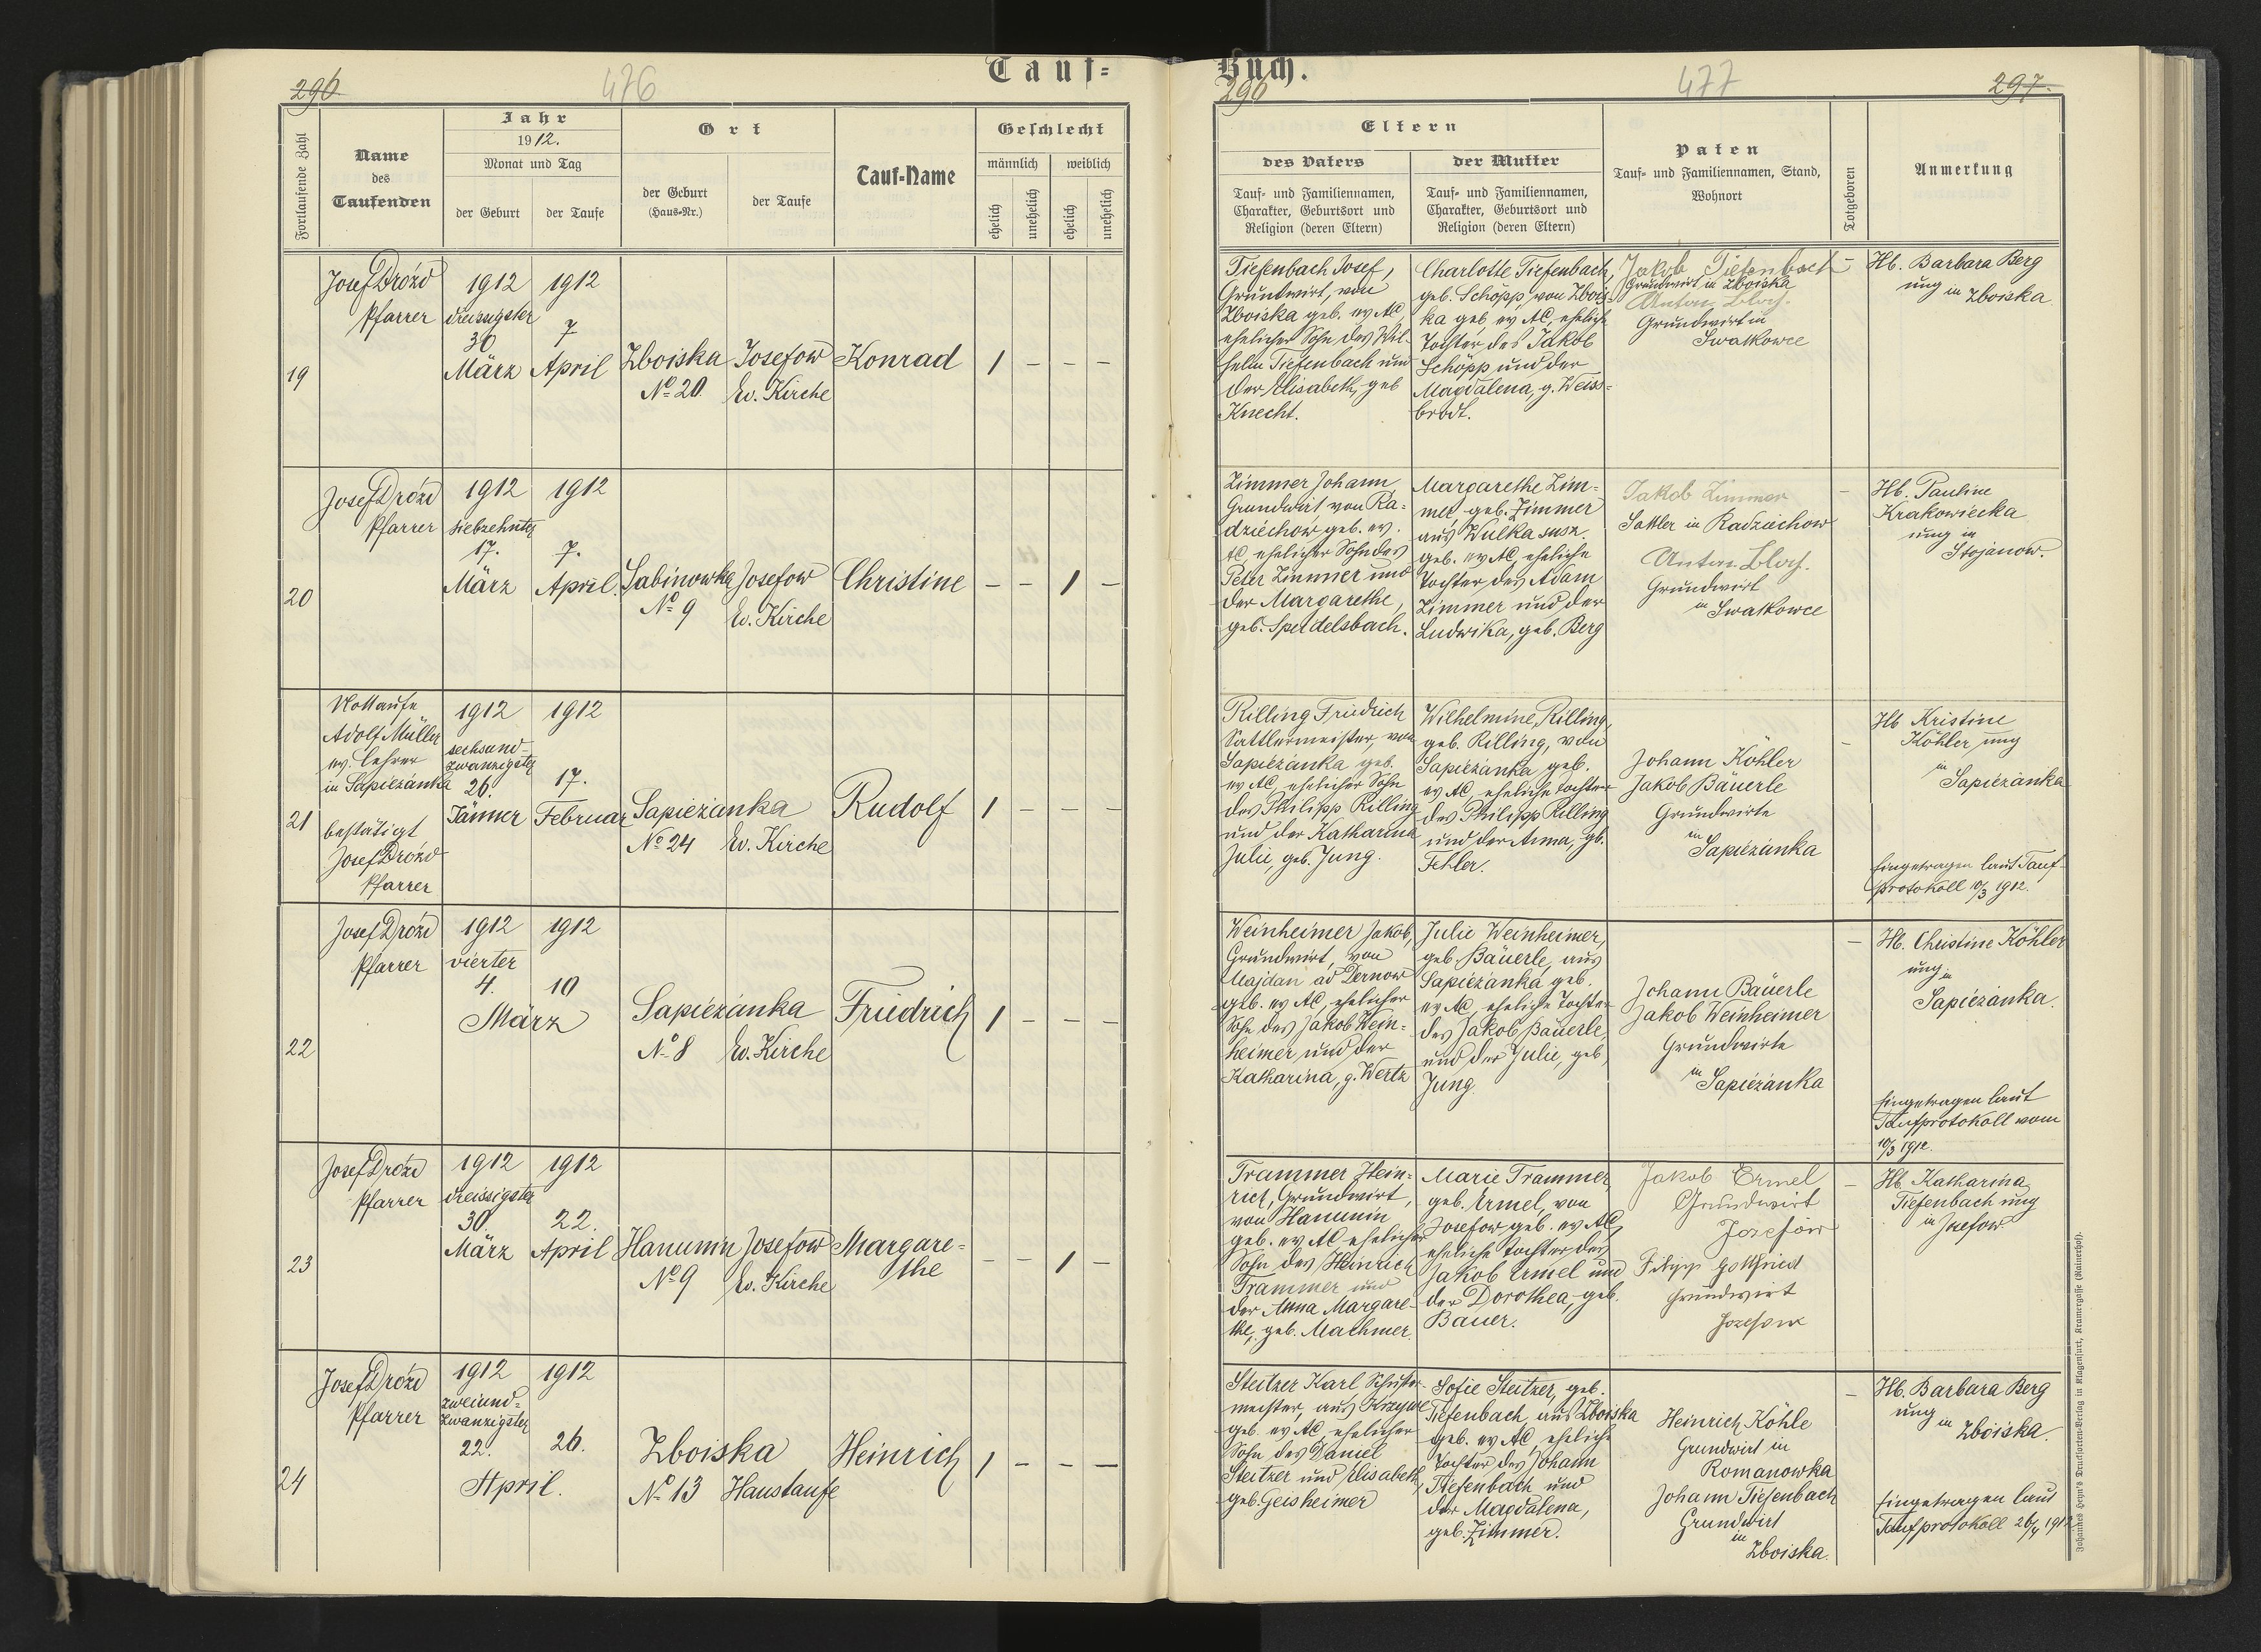 Tauf=
296
476
Fortlaufende Zahl
Name
des
Taufenden
Jahr
1912.
Monat und Tag
der Geburt
der Taufe
Ort
der Geburt
(Haus-Nr.)
der Taufe
Tauf-Name
Geschlecht
männlich
weiblich
ehelich
unehelich
ehelich
unehelich
19
Josef Drozd
Pfarrer
1912
dreissigster
30
März
1912
7
April
Zboiska
No 20.
Josefow
Ev. Kirche
Konrad
1 – – –
20
Josef Drozd
Pfarrer
1912
siebzehnter
17.
März
1912
7.
April.
Sabinowka
No 9
Josefow
Ev. Kirche
Christine
– – 1 –
21
Nottaufe
Adolf Müller
ev. Lehrer
in Sapiezanka
bestätigt
Josef Drozd
Pfarrer
1912
sechsund-
zwanzigster
26.
Jänner
1912
17.
Februar
Sapiezanka
No 24
Ev. Kirche
Rudolf
1 – – –
22
Josef Drozd
Pfarrer
1912
vierter
4.
1912
10
März
Sapiezanka
No 8
Ev. Kirche
Friedrich
1 – – –
23
Josef Drozd
Pfarrer
1912
dreissigster
30.
März
1912
22.
April
Hanunin
No 9
Josefow
Ev. Kirche
Margare=
the
– – 1 –
24
Josef Drozd
Pfarrer
1912
zweiund=
zwanzigster
22.
1912
26.
April.
Zboiska
No 13
Haustaufe
Heinrich
1 – – –
Buch.
296
477
297.
Eltern
des Vaters
Tauf- und Familiennamen,
Charakter, Geburtsort und
Religion (deren Eltern)
der Mutter
Tauf- und Familiennamen,
Charakter, Geburtsort und
Religion (deren Eltern)
Paten
Tauf- und Familiennamen, Stand,
Wohnort
Totgeboren
Anmerkung
Tiefenbach Josef,
Grundwirt, von
Zboiska geb. ev AC,
ehelicher Sohn des Wil-
helm Tiefenbach und
der Elisabeth, geb
Knecht.
Charlotte Tiefenbach,
geb. Schöpp, von Zbois-
ka geb ev AC, eheliche
Tochter des Jakob
Schöpp und der
Magdalena, g. Weiss=
brodt.
Jakob Tiefenbach
Grundwirt in Zboiska
Anton
Grundwirt in
Swatkowce
–
Hb. Barbara Berg
ung in Zboiska
Zimmer Johann
Grundwirt von Ra=
dziechow geb. ev.
AC ehelicher Sohn des
Peter Zimmer und
der Margarethe,
geb. Speidelsbach.
Margarethe Zim=
mer geb. Zimmer
aus Wulka susz.
geb. ev AC eheliche
Tochter des Adam
Zimmer und der
Ludwika, geb. Berg
Jakob Zimmer
Sattler in Radziechow
Anton
Grundwirt
in Swatkowce
–
Hb. Pauline
Krakowiecka
ung in
Stojanow.
Rilling Friedrich
Sattlermeister, von
Sapiezanka geb.
ev AC, ehelicher Sohn
des Philipp Rilling
und der Katharina
Julie, geb. Jung.
Wilhelmine Rilling,
geb. Rilling, von
Sapiezanka geb.
ev AC, eheliche Tochter
des Philipp Rilling
und der Anna, gb.
Fehler.
Johann Köhler
Jakob Bäuerle
Grundwirte
in
Sapiezanka
–
Hb Kristine
Köhler ung
in
Sapiezanka
Eingetragen laut Tauf-
protokoll 10/3 1912.
Weinheimer Jakob,
Grundwirt, von
Majdan ad Dernow
geb. ev AC, ehelicher
Sohn des Jakob Wein=
heimer und der
Katharina, g. Wertz
Julie Weinheimer,
geb. Bäuerle, aus
Sapiezanka, geb.
ev AC, eheliche Tochter
des Jakob Bäuerle,
und der Julie, geb
Jung.
Johann Bäuerle
Jakob Weinheimer
Grundwirte
in
Sapiezanka
–
Hb. Christine Köhler
ung in
Sapiezanka.
Eingetragen laut
Taufprotokoll vom
10/3 1912.
Trammer Hein=
rich, Grundwirt,
von Hanunin
geb. ev AC ehelicher
Sohn des Heinrich
Trammer und
der Anna Margare-
the, geb. Mathmer.
Marie Trammer,
geb. Ermel, von
Josefow geb. ev AC,
eheliche Tochter des
Jakob Ermel und
der Dorothea, geb.
Bauer.
Jakob Ermel
Grundwirt
Josefow
Filipp Gottfried
Grundwirt
Josefow
–
Hb. Katharina
Tiefenbach ung
in Josefow
Steitzer Karl Schuster-
meister, aus Krzywe
geb. ev AC, ehelicher
Sohn des Daniel
Steitzer und Elisabeth,
geb. Geisheimer
Sofie Steitzer, geb.
Tiefenbach, aus Zboiska
geb. ev AC, eheliche
Tochter des Johann
Tiefenbach und
der Magdalena,
geb. Zimmer.
Heinrich Köhle
Grundwirt in
Romanowka
Johann Tiefenbach
Grundwirt
in
Zboiska.
–
Hb. Barbara Berg
ung in
Zboiska.
Eingetragen laut
Taufprotokoll 26/4 1912
Johannes Heyn's Drucksorten-Verlag in Klagenfurt, Kramergasse (Rainerhof).